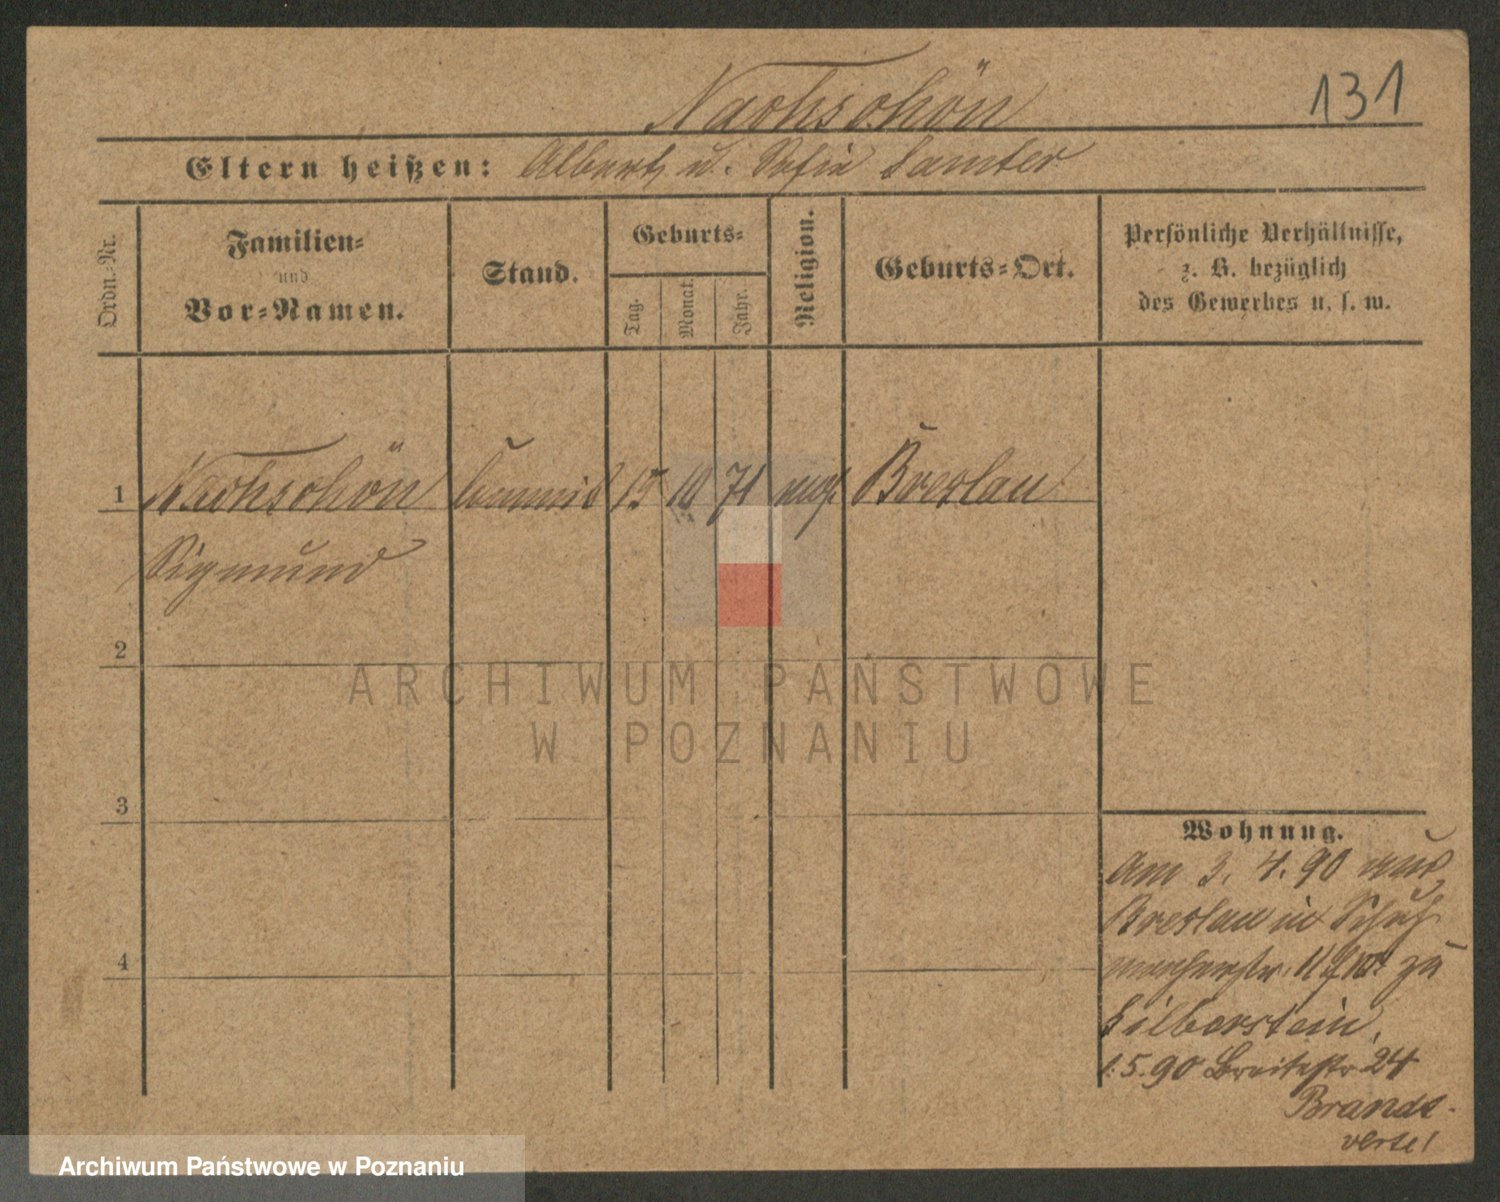 131
Nachschön
Eltern heißen: Albert u. Sofie Samter
Ordn.-Nr.
Familien-
und
Vor-Namen.
Stand.
Geburts-
Tag.
Monat.
Jahr.
Religion.
Geburts-Ort.
Persönliche Verhältnisse,
z. B. bezüglich
des Gewerbes u. s. w.
1 Nachschön Commis 15 10 71 mos. Breslau
Sigmund
2
3
4
Wohnung.
Am 3. 4. 90 aus
Breslau in Schuh-
macherstr. 11 zu
Silberstein,
1.5.90 Breitestr 24
ARCHIWUM PAŃSTWOWE
W POZNANIU
Archiwum Państwowe w Poznaniu